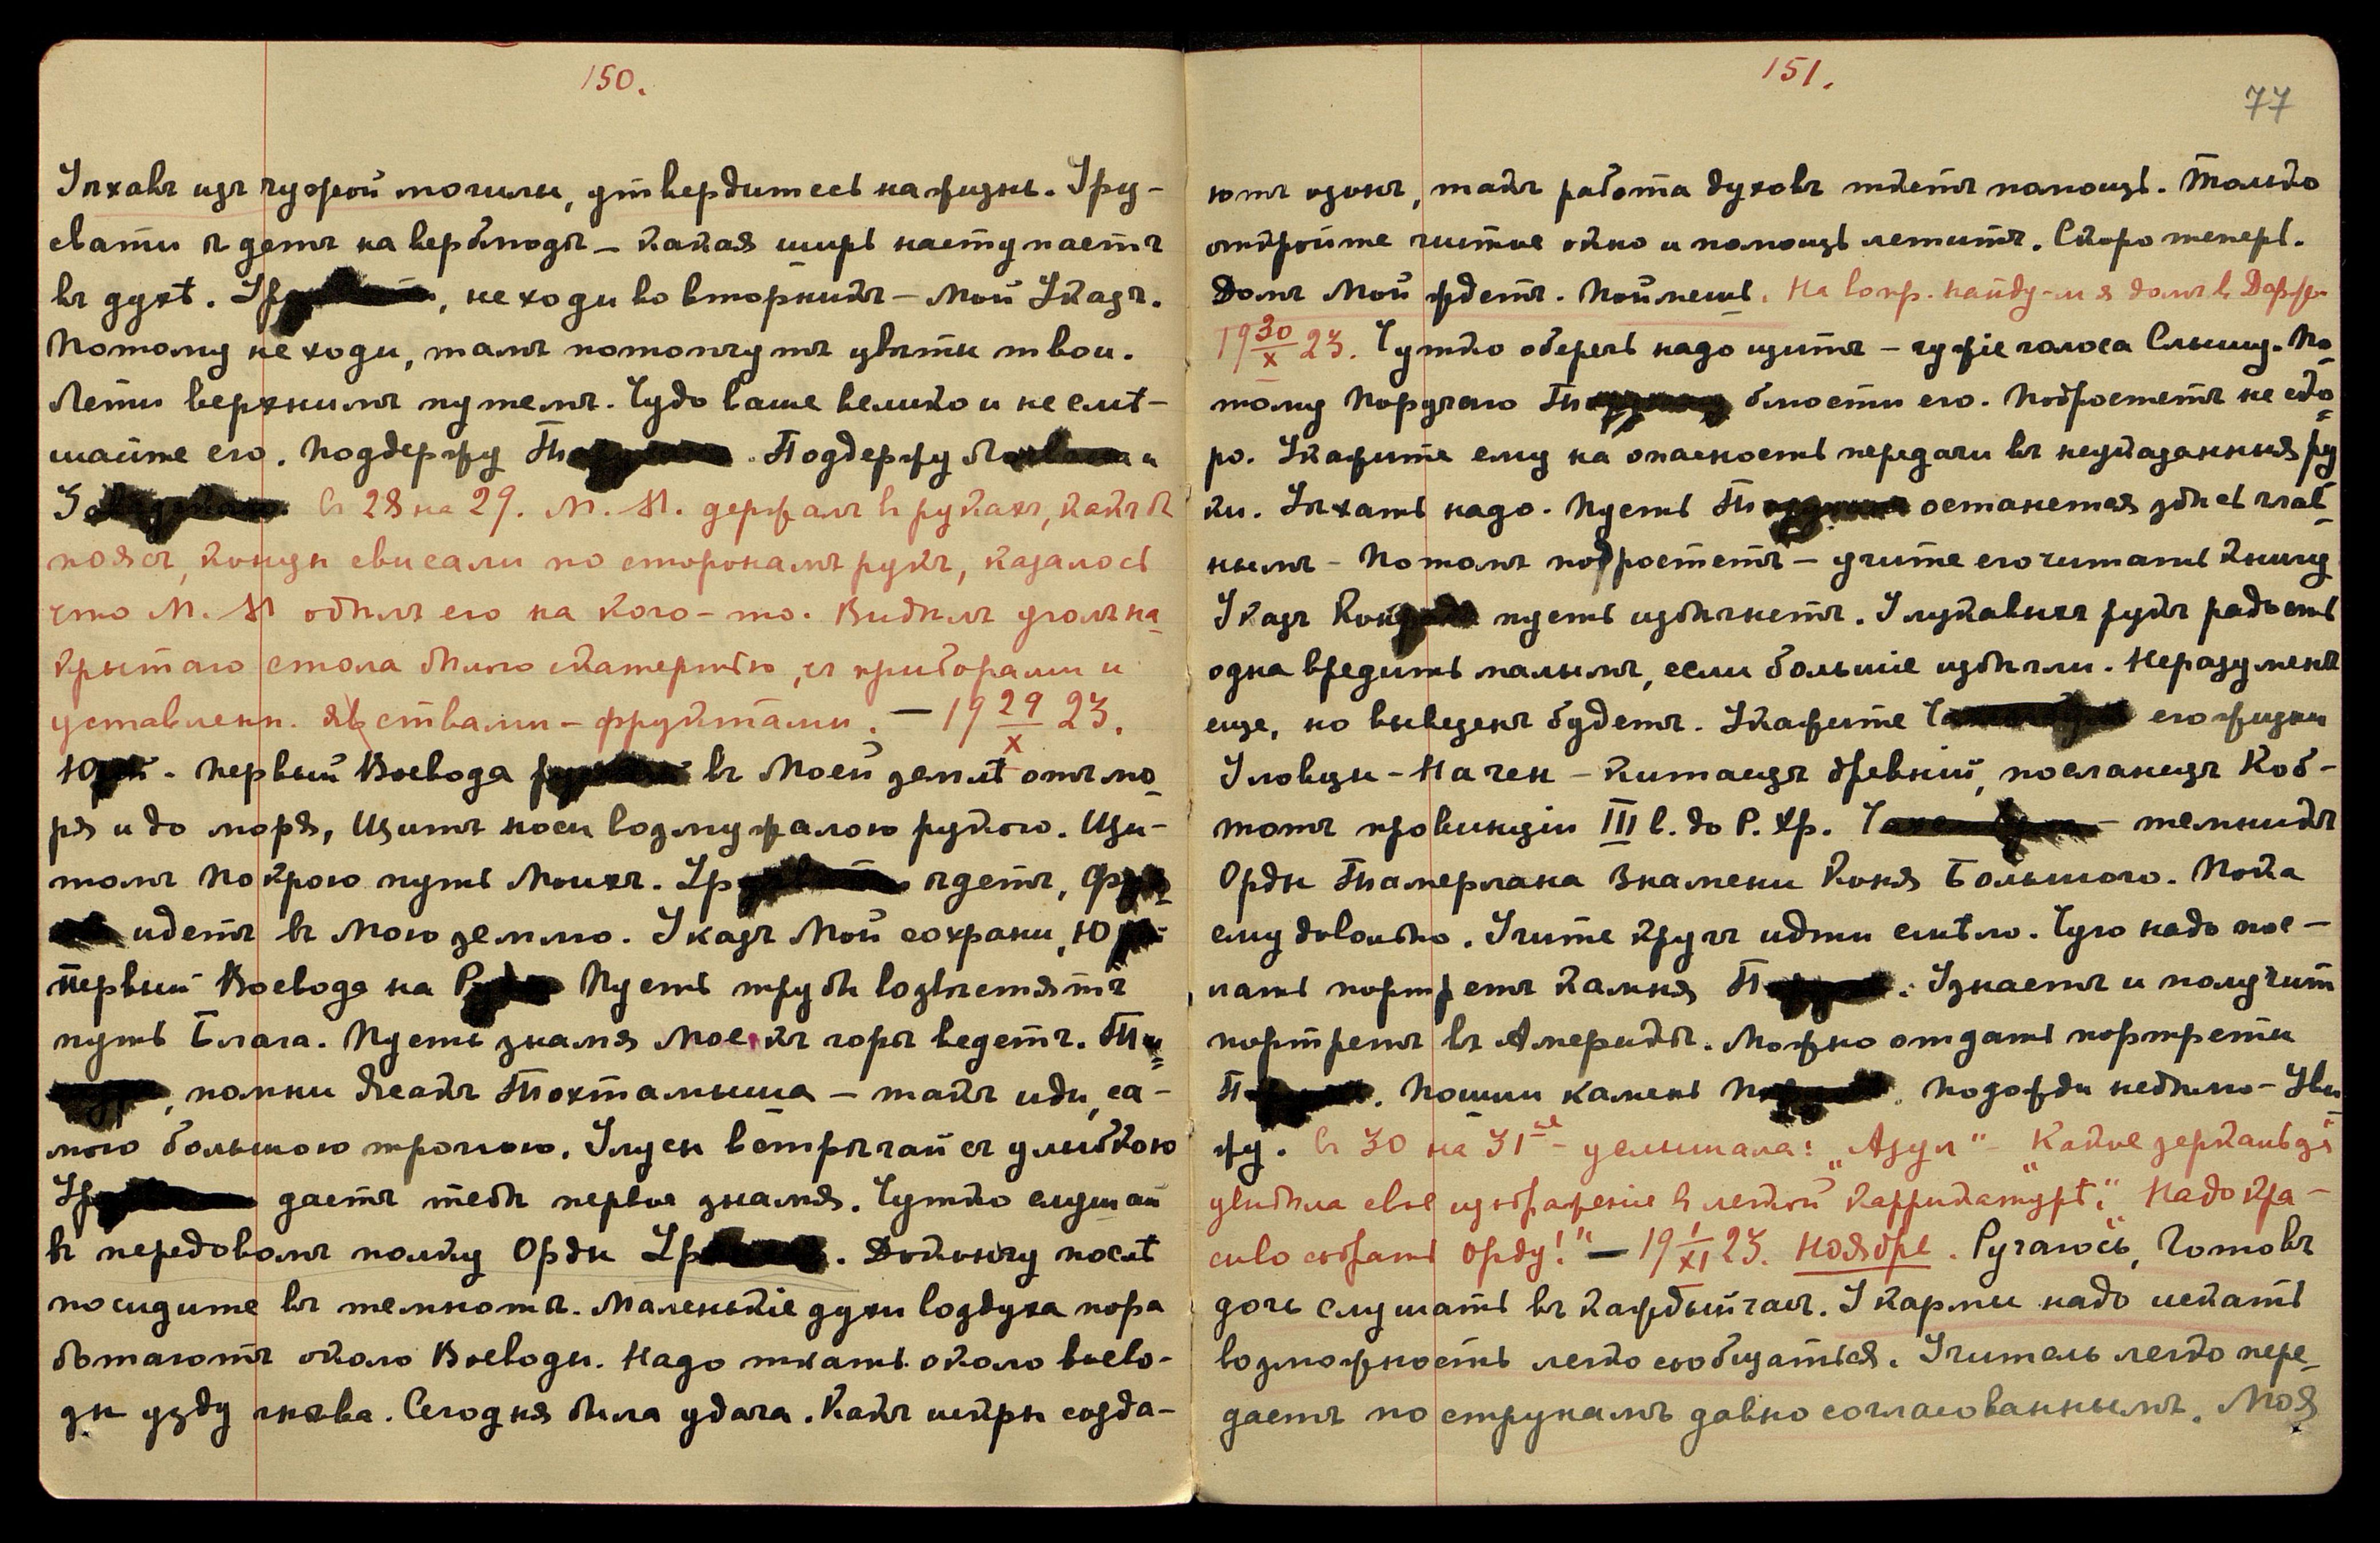 150.
Уѣхавъ изъ чужой могилы, утвердитесь на жизнь. Уру-
свати ѣдетъ на верблюдѣ – какая ширь наступаетъ
въ духѣ. не ходи во вторникъ – Мой Указъ.
Потому не ходи, тамъ потопчутъ цвѣты твои.
Лети верхнимъ путемъ. Чудо ваше велико и не смѣ-
шайте его. Подержу Подержу и
въ 28 на 29. М. М. держалъ въ рукахъ, какъ бы
поясъ, концы свисали по сторонамъ рукъ, казалось
что М. М обвилъ его на кого-то. Видѣлъ уголъ на-
крытаго стола бѣлою скатертью, съ приборами и
уставлены. явствами – фруктами. – 19 29/X 23.
Первый Воевода въ Моей землѣ отъ мо-
ря и до моря, Щитъ носи возмужалою рукою. Щи-
томъ Покрою путь Моихъ. ѣдетъ,
идетъ въ Мою землю. Указъ Мой сохрани,
первый Воевода на Пусть трубы возвѣстятъ
путь Блага. Пусть знамя Мое къ горѣ ведетъ.
помни Тохтамыша – такъ иди, са-
мою большою тропою. Улусы встрѣчай съ улыбкою
даетъ тебѣ первое знамя. Чутко слушай
въ передовомъ полку Орды Докончу послѣ
посидите въ темнотѣ. Маленькіе духи воздуха пора
ботаютъ около Воеводы. Надо ткать около воево-
ды узду гнѣва. Сегодня была удача. Какъ искры созда-
151.
77
ютъ озонъ, такъ работа духовъ ткетъ помощь. Только
откройте чистое окно и помощь летитъ. Скоро теперь.
Домъ Мой ждетъ. Поймешь. На вопр. найду-ли я домъ в
19 30/X 23. Чутко оберечь надо щитъ – чужіе голоса Слышу. По-
тому Поручаю блюсти его. Подростетъ не ско-
ро. Укажите ему на опасность передачи въ неуказанныя ру
ки. Уѣхать надо. Пусть останется здѣсь глав-
нымъ – Потомъ подростетъ – учите его читать книгу
Указъ пусть избѣгнетъ. У лукавыхъ рукъ радость
одна вредить малымъ, если большіе избѣгли. Неразуменъ
еще, но выведенъ будетъ. Укажите его жизни
Уловцы – На чен – китаецъ древній, посланецъ Коб-
тотъ провинціи III в. до Р. Хр. – темникъ
Орды Тамерлана Знамени Коня Большого. Пока
ему довольно. Учите кругъ идти смѣло. Чую надо пос-
лать портретъ камня Узнаетъ и получит
портретъ въ Америкѣ. Можно отдать портреты
Пошли камень Подожди недѣлю – Ука
жу. въ 30 на 31ое – услышала: „Азул" – Какое зеркальцѣ
увидѣла свое изображеніе в легкой каррикатурѣ." „Надо кра-
сиво собрать Орду!" – 19 1/XI 23. Ноябрь. Ручаюсь, Готовъ
дочь слушать въ каждый часъ. У кармы надо искать
возможность легко сообщаться. Учитель легко пере-
даетъ по струнамъ давно согласованнымъ. Моя